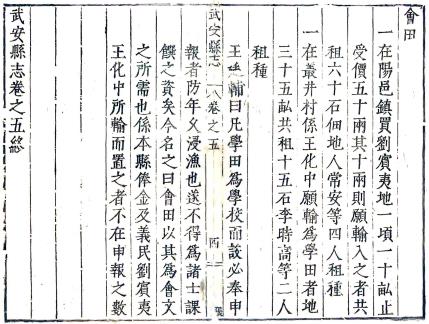 會田
一在陽邑鎮買劉賓夷地一頃一十畝止
受價五十兩其十兩則願輸入之者共
租六十石佃地人常安等四人租種
一在叢井村係王化中願輸為學田者地
三十五畝共租十五石李時高等二人
租種
王 輔曰凡學田為學校而設必奉申
報者防年久浸漁也遂不得為諸士課
饌之資矣今名之曰會田以其為會文
之所需也係本縣俸金及義民劉賓夷
王化中所輸而置之者不在申報之數
武安縣志卷之五終
武安縣志 卷之五 四二